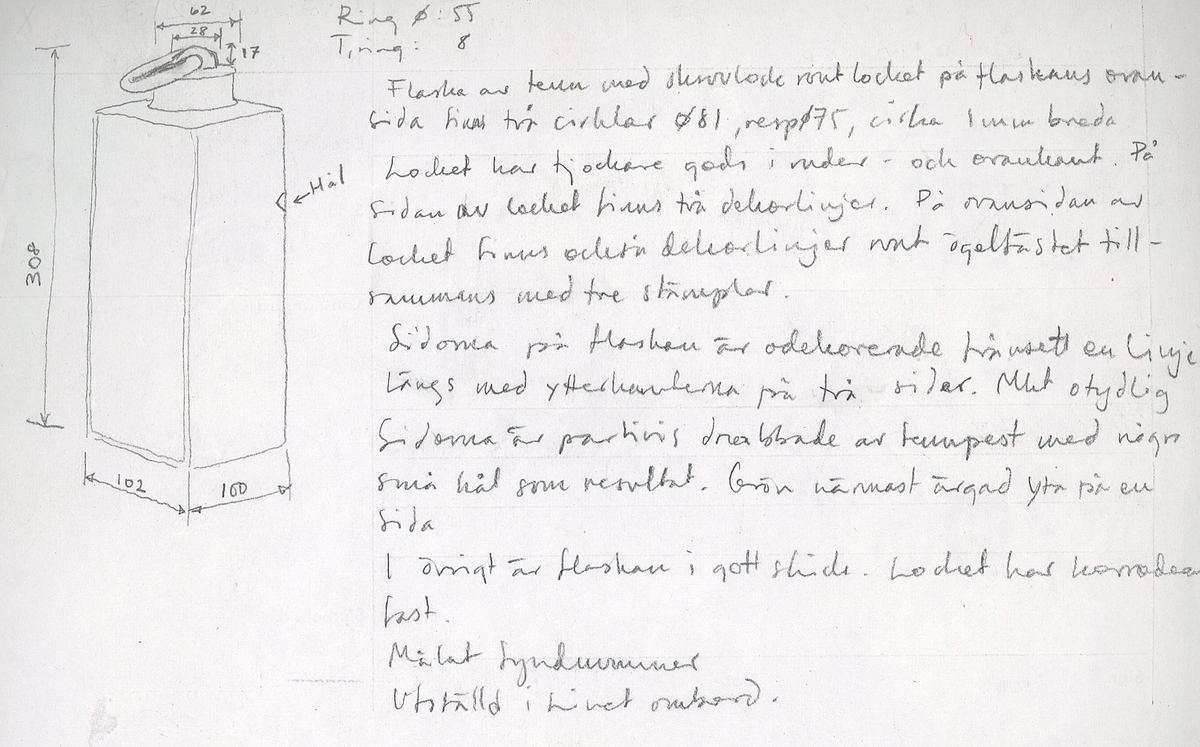 62
28
17
Ring ø: 55
T, ring: 8
Flaska av tenn med skruvlock runt locket på flaskans ovan-
sida finns två cirklar ø81, resp ø75, cirka 1 mm breda
Locket har tjockare gods i under- och ovankant. På
Hål
sidan av locket finns två dekorlinjer. På ovansidan av
locket finns också dekorlinjer runt ögelfästet till-
308
sammans med tre stämplar.
Sidorna på flaskan är odekorerade frånsett en linje
längs med ytterkanterna på två sidor. Mkt otydlig
Sidorna är partivis drabbade av tennpest med några
små hål som resultat. Grön närmast ärgad yta på en
102
100
sida
I övrigt är flaskan i gott skick. Locket har korroderat
fast.
Målat fyndnummer
Utställd i Livet ombord.